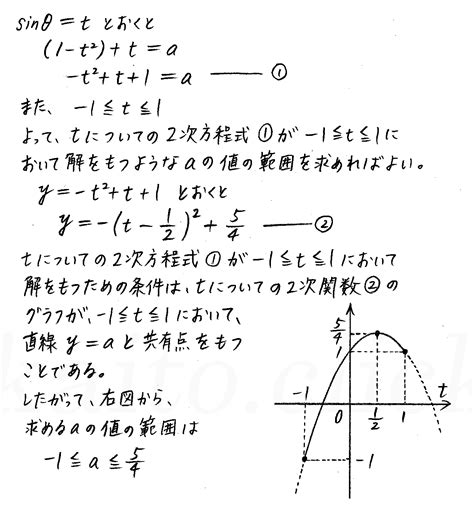 sinθ = t とおくと
(1-t²)+t = a
-t²+t+1 = a ―― ①
また、 -1 ≦ t ≦ 1
よって、tについての2次方程式①が -1≦t≦1に
おいて解をもつようなaの値の範囲を求めればよい。
y = -t²+t+1 とおくと
y = -(t - 1/2)² + 5/4 ―― ②
tについての2次方程式①が-1≦t≦1において
解をもつための条件は、tについての2次関数②の
グラフが、-1≦t≦1において、
直線 y = a と共有点をもつ
ことである。
したがって、右図から、
求めるaの値の範囲は
-1 ≦ a ≦ 5/4
5/4
1
-1
t
0
1/2
1
-1